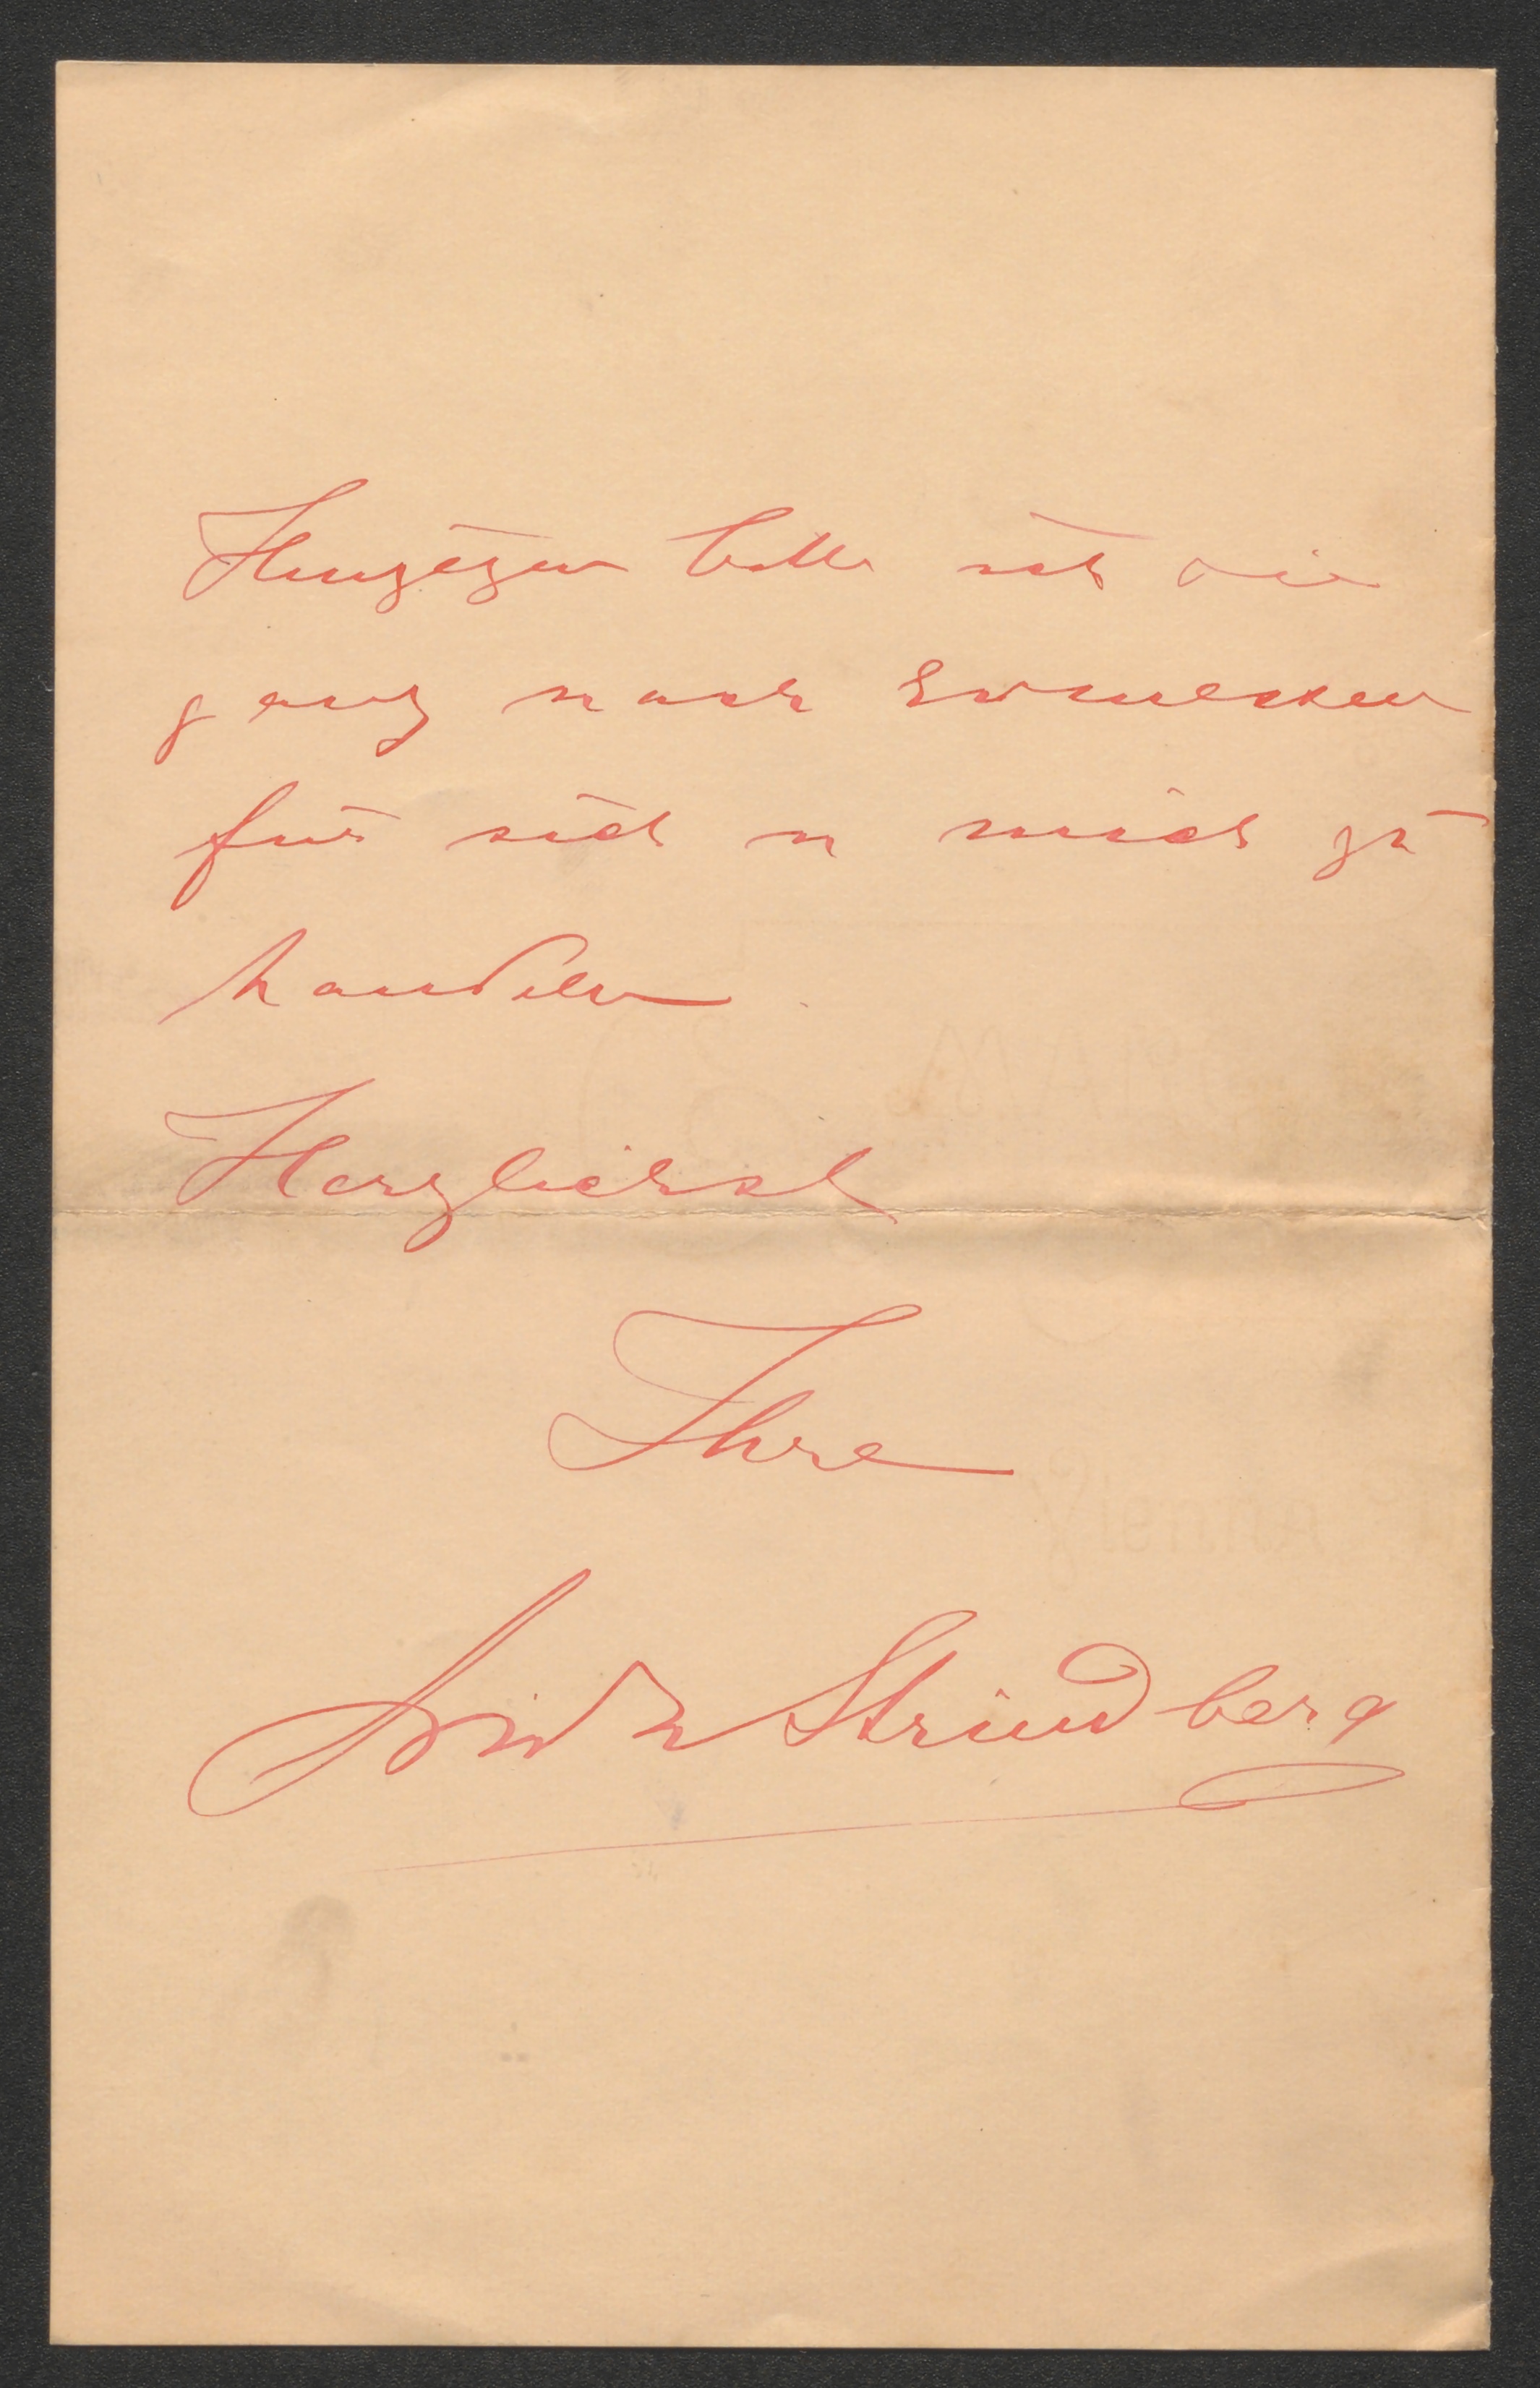 Hingegen bitte ich Sie
ganz nach Ermessen
für sich u mich zu
handeln.
Herzlichst
Ihre
Frida Strindberg